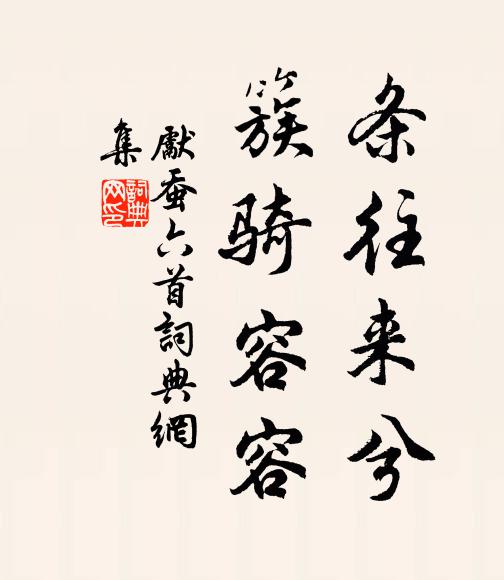 条往来兮
簇骑容容
獻蚕六首詞典網
集
詞典網印